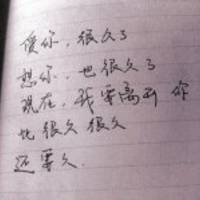 爱你，很久了
想你，也很久了
现在，我要离开你
比很久很久
还要久.